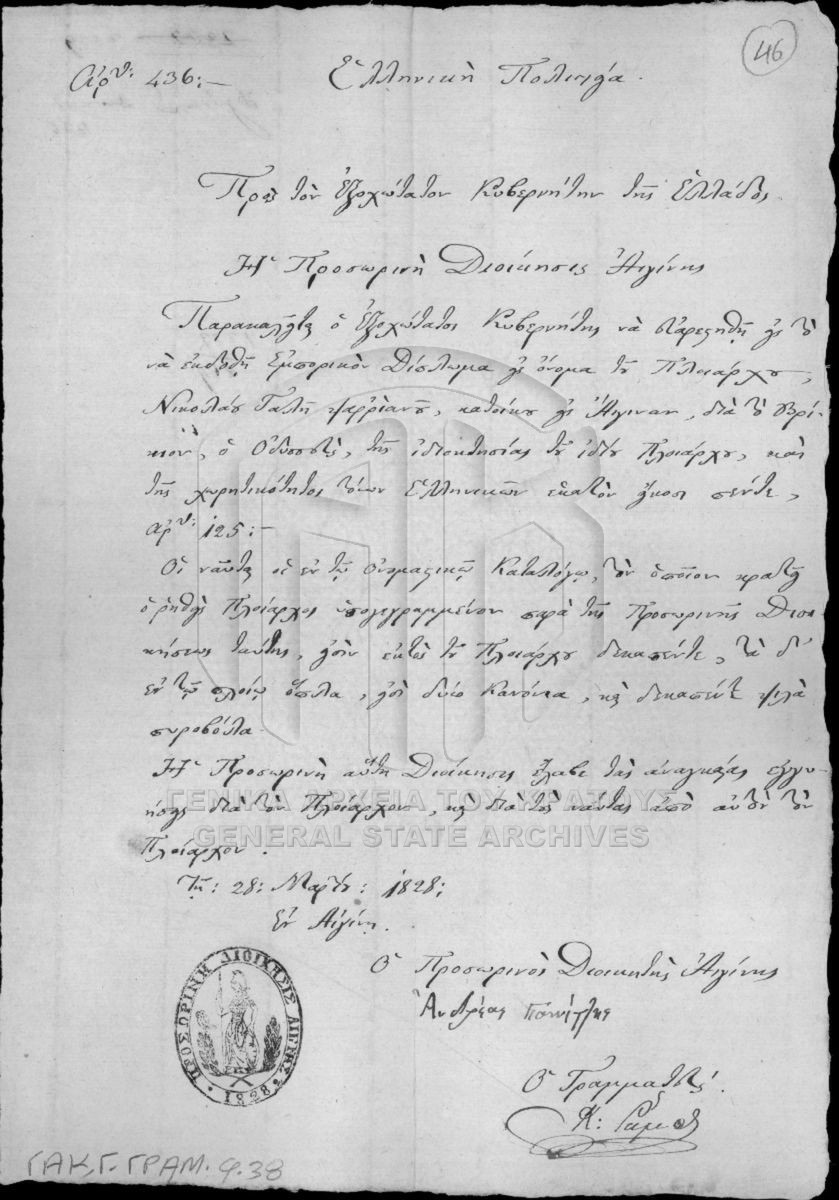 46
Ἀρθ: 436:—
Ἑλληνικὴ Πολιτεία.
Πρὸς τὸν Ἐξοχώτατον Κυβερνήτην τῆς Ἑλλάδος.
Ἡ Προσωρινὴ Διοίκησις Αἰγίνης
Παρακαλεῖται ὁ Ἐξοχώτατος Κυβερνήτης νὰ εὐαρεστηθῇ εἰς τὸ
νὰ ἐκδοθῇ Ἐμπορικὸν Δίπλωμα εἰς ὄνομα τοῦ Πλοιάρχου,
Νικολάου Ψαρριανοῦ, κατοίκου εἰς Αἴγιναν, διὰ τὸ βρί-
κιον, ὁ Ὀδυσσεὺς, τῆς ἰδιοκτησίας τοῦ ἰδίου Πλοιάρχου, καὶ
τῆς χωρητικότητος τόνων Ἑλληνικῶν ἑκατὸν εἴκοσι πέντε,
ἀρθ: 125:—
Οἱ ναῦται οἱ ἐν τῷ Ὀνομαστικῷ Καταλόγῳ, τὸν ὁποῖον κρατεῖ
ὁ ῥηθεὶς Πλοίαρχος ὑπογεγραμμένον παρὰ τῆς Προσωρινῆς Διοι-
κήσεως ταύτης, εἰσὶν ἐκτὸς τοῦ Πλοιάρχου δεκαπέντε, τὰ δ'
ἐν τῷ πλοίῳ ὅπλα, εἰσὶ δύο κανόνια, καὶ δεκαπέντε ψιλὰ
πυροβόλα.
Ἡ Προσωρινὴ αὕτη Διοίκησις ἔλαβε τὰς ἀναγκαίας ἐγγυ-
ήσεις διὰ τὸν Πλοίαρχον, καὶ διὰ τοὺς ναύτας ἀπὸ αὐτὸν τὸν
Πλοίαρχον.
Τῇ: 28: Μαρτίου: 1828:
Ἐν Αἰγίνῃ.
Ὁ Προσωρινὸς Διοικητὴς Αἰγίνης
Ἀνδρέας
Ὁ Γραμματεὺς
Κ:
ΠΡΟΣΩΡΙΝΗ ΔΙΟΙΚΗΣΙΣ ΑΙΓΙΝΗΣ
1828
ΓΕΝΙΚΑ ΑΡΧΕΙΑ ΤΟΥ ΚΡΑΤΟΥΣ
GENERAL STATE ARCHIVES
ΓΑΚ, Γ. ΓΡΑΜ. φ. 38